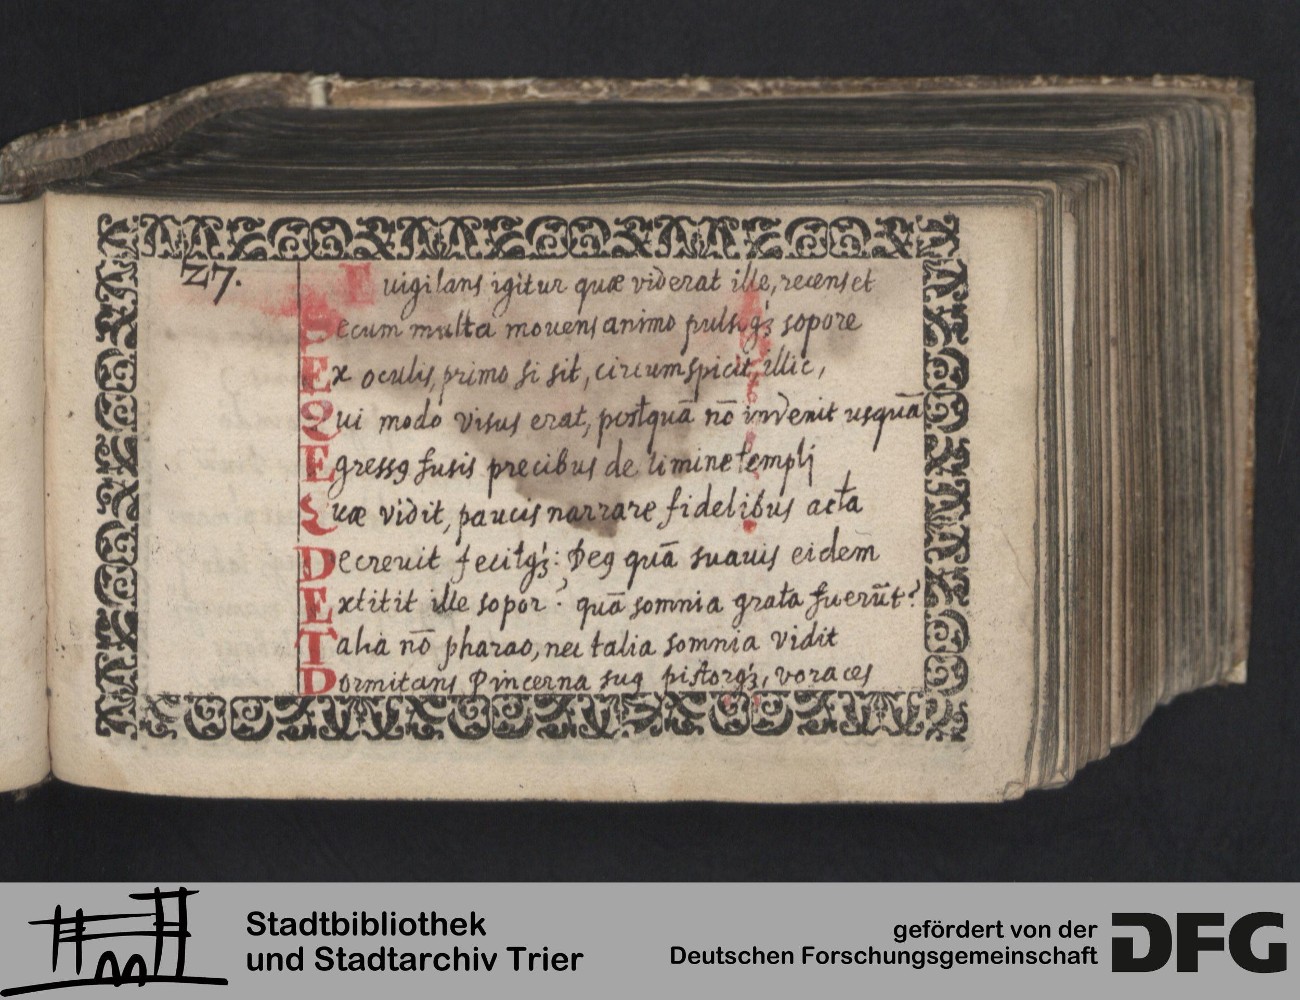 27.
Euigilans igitur quæ viderat ille, recenset
Secum multa mouens animo pulsoqꝫ sopore
Ex oculis, primo si sit, circumspicit, illic,
Qui modo visus erat, postquā nō invenit usquā
Egressꝯ fusis precibus de limine templi
Quæ vidit, paucis narrare fidelibus acta
Decreuit fecitqꝫ: Deꝯ quā suauis eidem̄
Extitit ille sopor? quā somnia grata fuerūt?
Talia nō pharao, nec talia somnia vidit
Dormitans Pincerna suꝯ pistorqꝫ, voraces
Stadtbibliothek
und Stadtarchiv Trier
gefördert von der
Deutschen Forschungsgemeinschaft
DFG